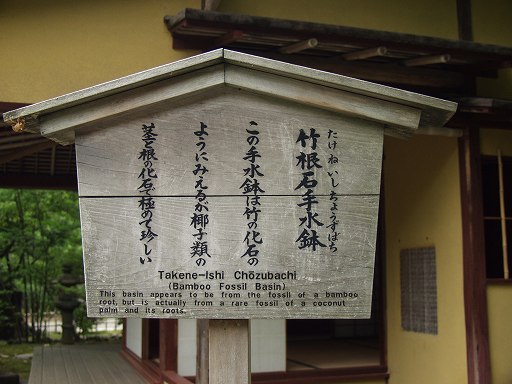 たけねいしちょうずばち
竹根石手水鉢
この手水鉢は竹の化石の
ようにみえるが椰子類の
茎と根の化石で極めて珍しい
Takene-Ishi Chōzubachi
(Bamboo Fossil Basin)
This basin appears to be from the fossil of a bamboo
root, but is actually from a rare fossil of a coconut
palm and its roots.